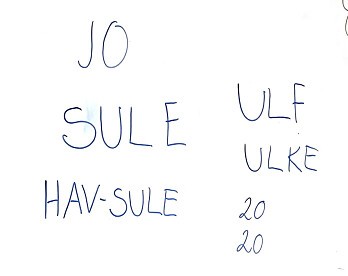 JO
SULE
HAV-SULE
ULF
ULKE
20
20